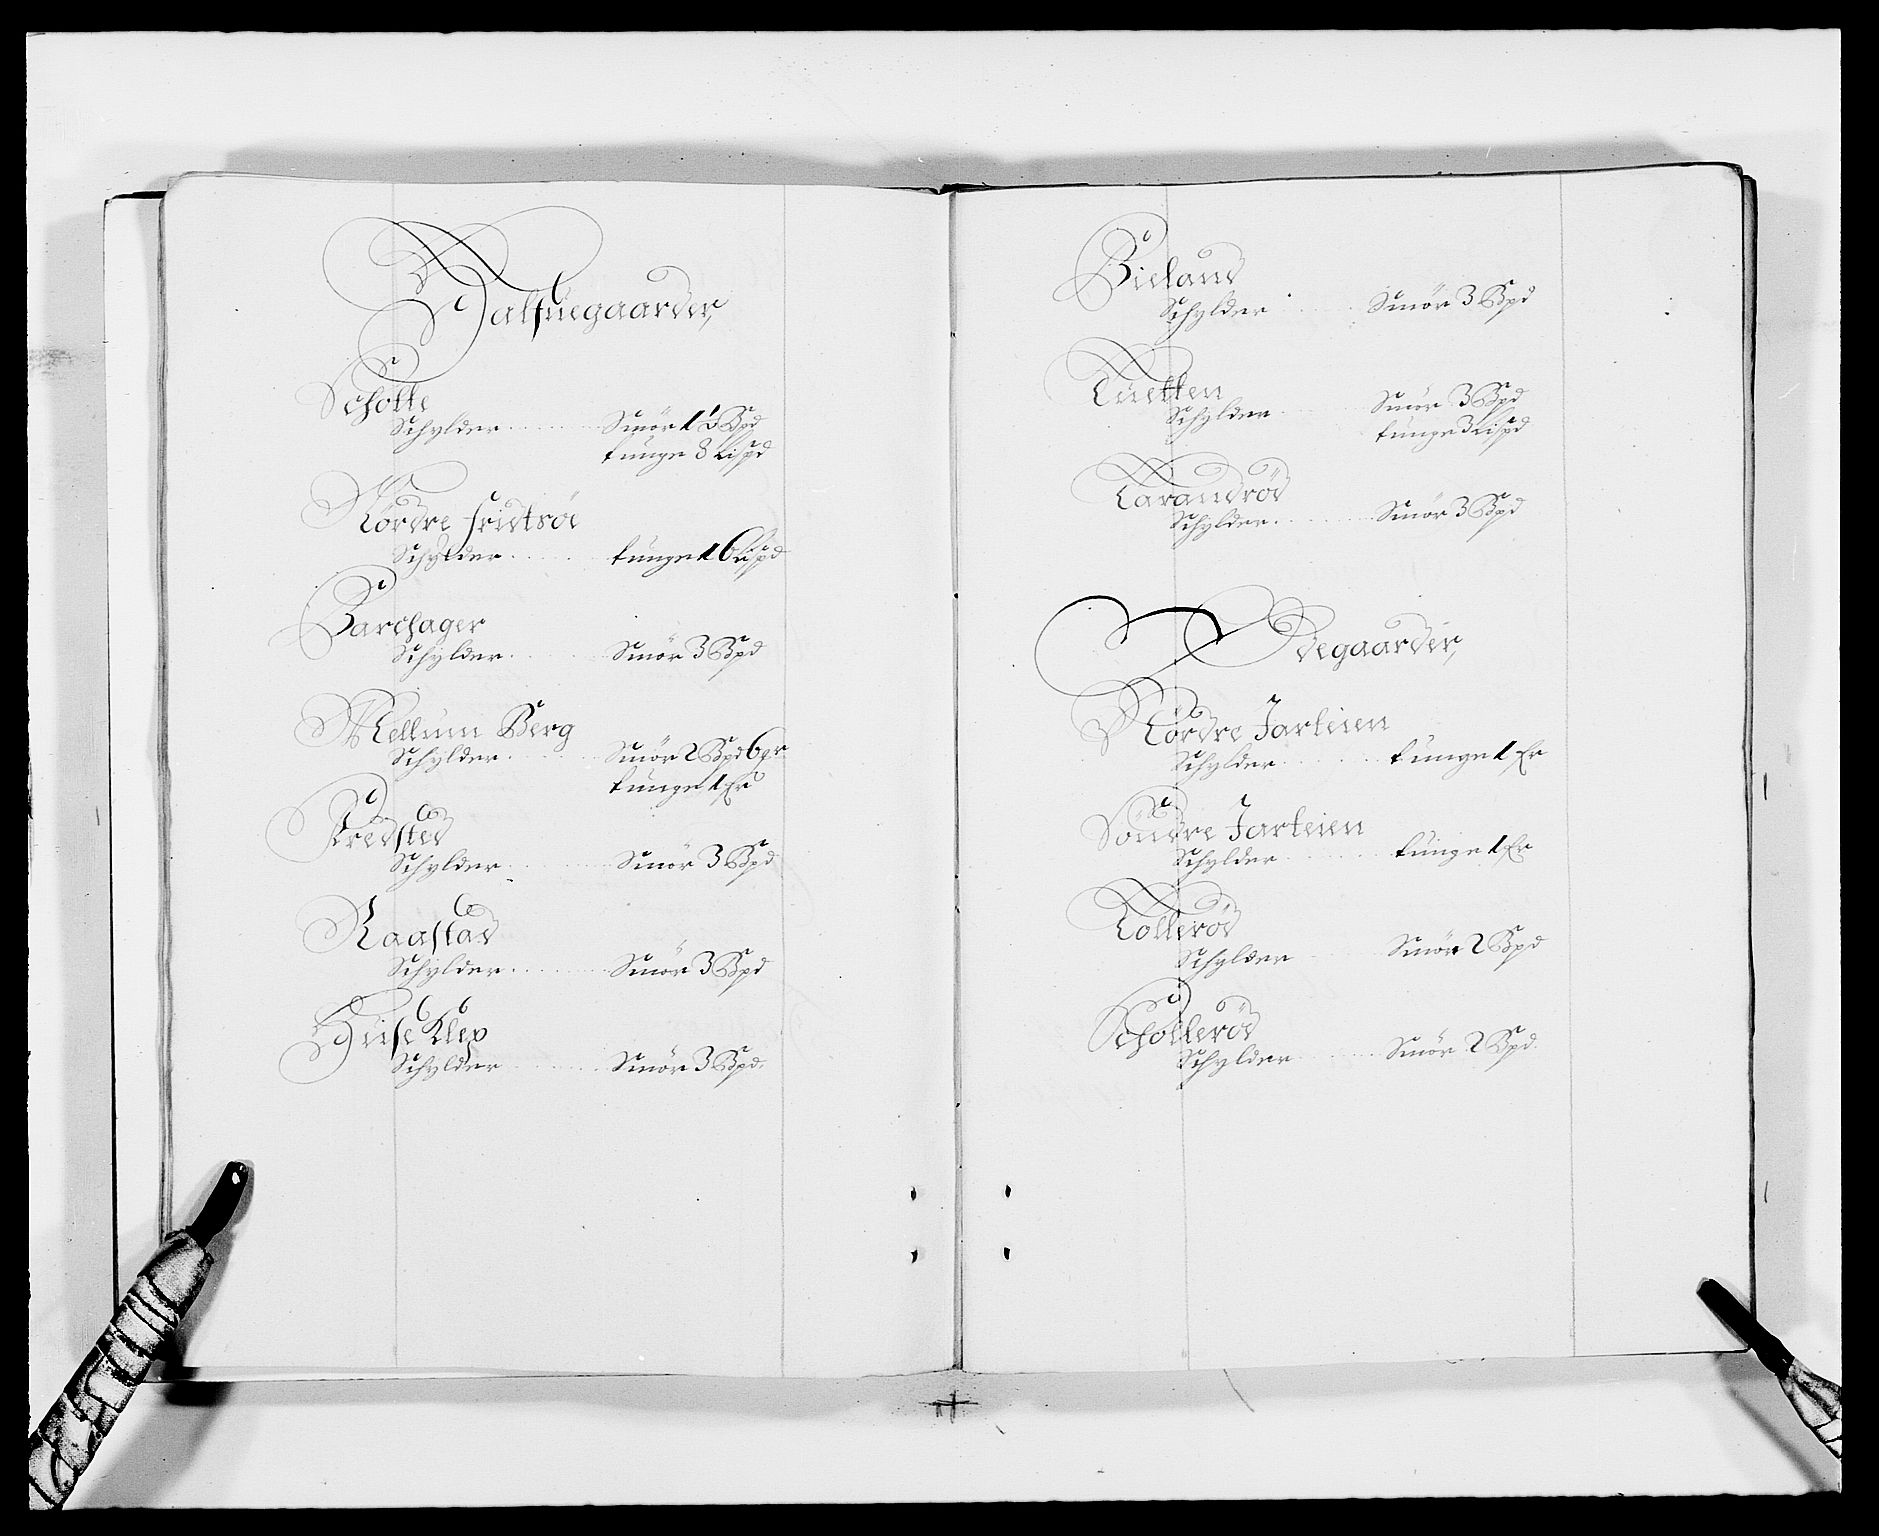 Halfuegaarder,
Scholte
Schylder Smör 1½ Bpd
tunge 8 Lispd
Nordre fridtsöe
Schylder tunge 16 Lispd
Barchager
Schylder Smör 3 Bpd
Mellum Berg
Schylder Smör 2 Bpd 6 gr
tunge 1 Er
Fredsted
Schylder Smör 3 Bpd
Raastad
Schylder Smör 3 Bpd
Huse Klep
Schylder Smör 3 Bpd.
Bieland
Schylder Smör 3 Bpd
Tuetten
Schylder Smör 3 Bpd
tunge 3 Lispd
Tarandröd
Schylder Smör 3 Bpd
Ödegaarder,
Nordre Jarteien
Schylder tunge 1 Er
Söndre Jarteien
Schylder tunge 1 Er
Tolleröd
Schylder Smör 2 Bpd
Scholleröd
Schylder Smör 2 Bpd